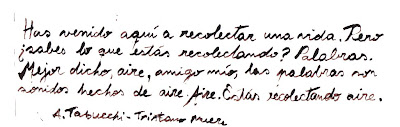 Has venido aquí a recolectar una vida. Pero
¿sabes lo que estás recolectando? Palabras.
Mejor dicho, aire, amigo mío, las palabras son
sonidos hechos de aire. Aire. Estás recolectando aire.
A. Tabucchi - Tristano muere